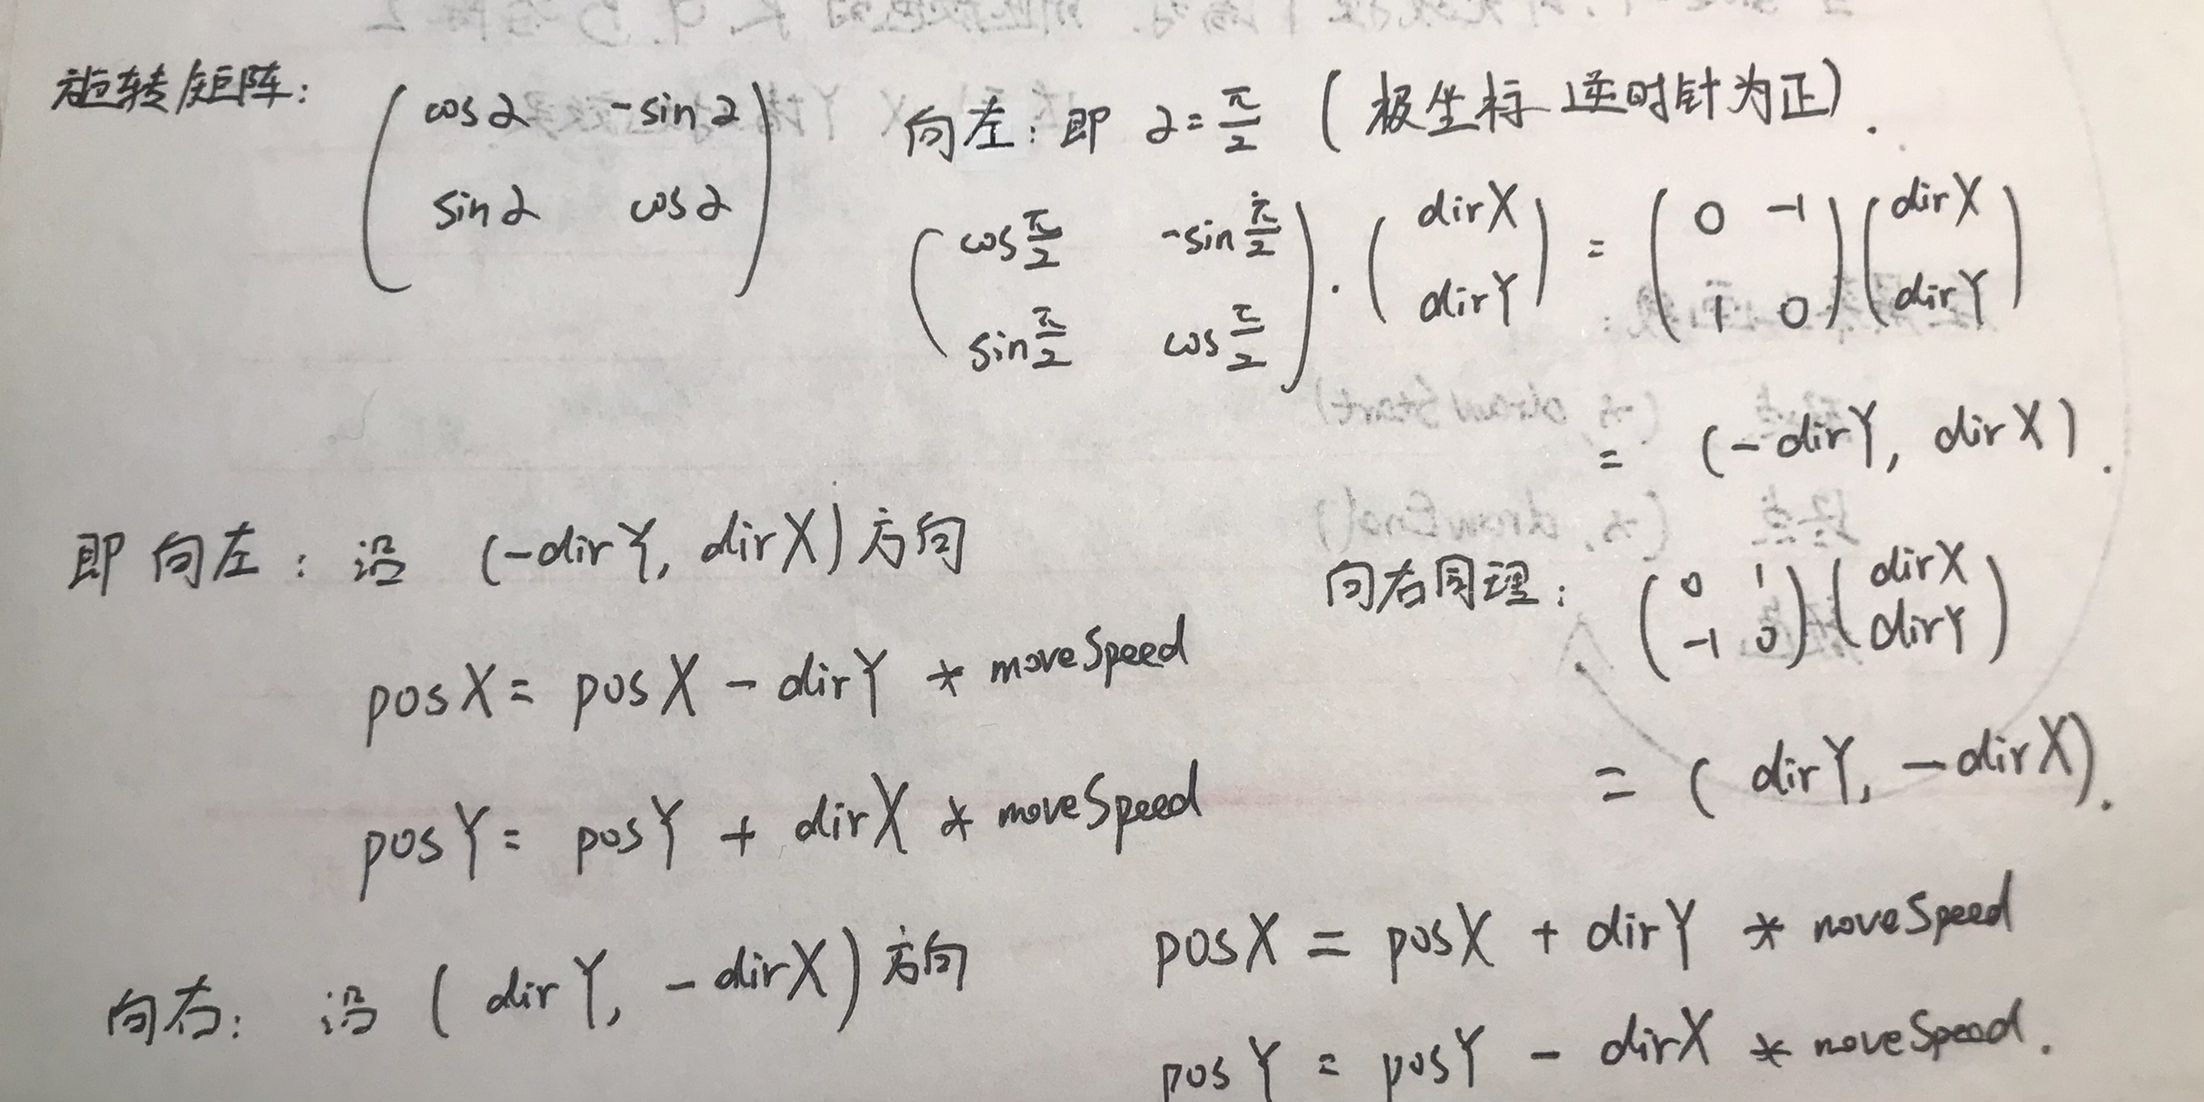 旋转矩阵: ( cos α  -sin α
sin α  cos α )
向左: 即 α = π/2 ( 极坐标 逆时针为正 ) .
( cos π/2  -sin π/2
sin π/2  cos π/2 ) · ( dirX
dirY ) = ( 0 -1
1 0 ) ( dirX
dirY )
= (-dirY, dirX) .
即 向左: 沿 (-dirY, dirX) 方向
posX = posX - dirY * moveSpeed
posY = posY + dirX * moveSpeed
向右同理: ( 0 1
-1 0 ) ( dirX
dirY )
= ( dirY, -dirX) .
向右: 沿 ( dirY, -dirX) 方向
posX = posX + dirY * moveSpeed
posY = posY - dirX * moveSpeed .